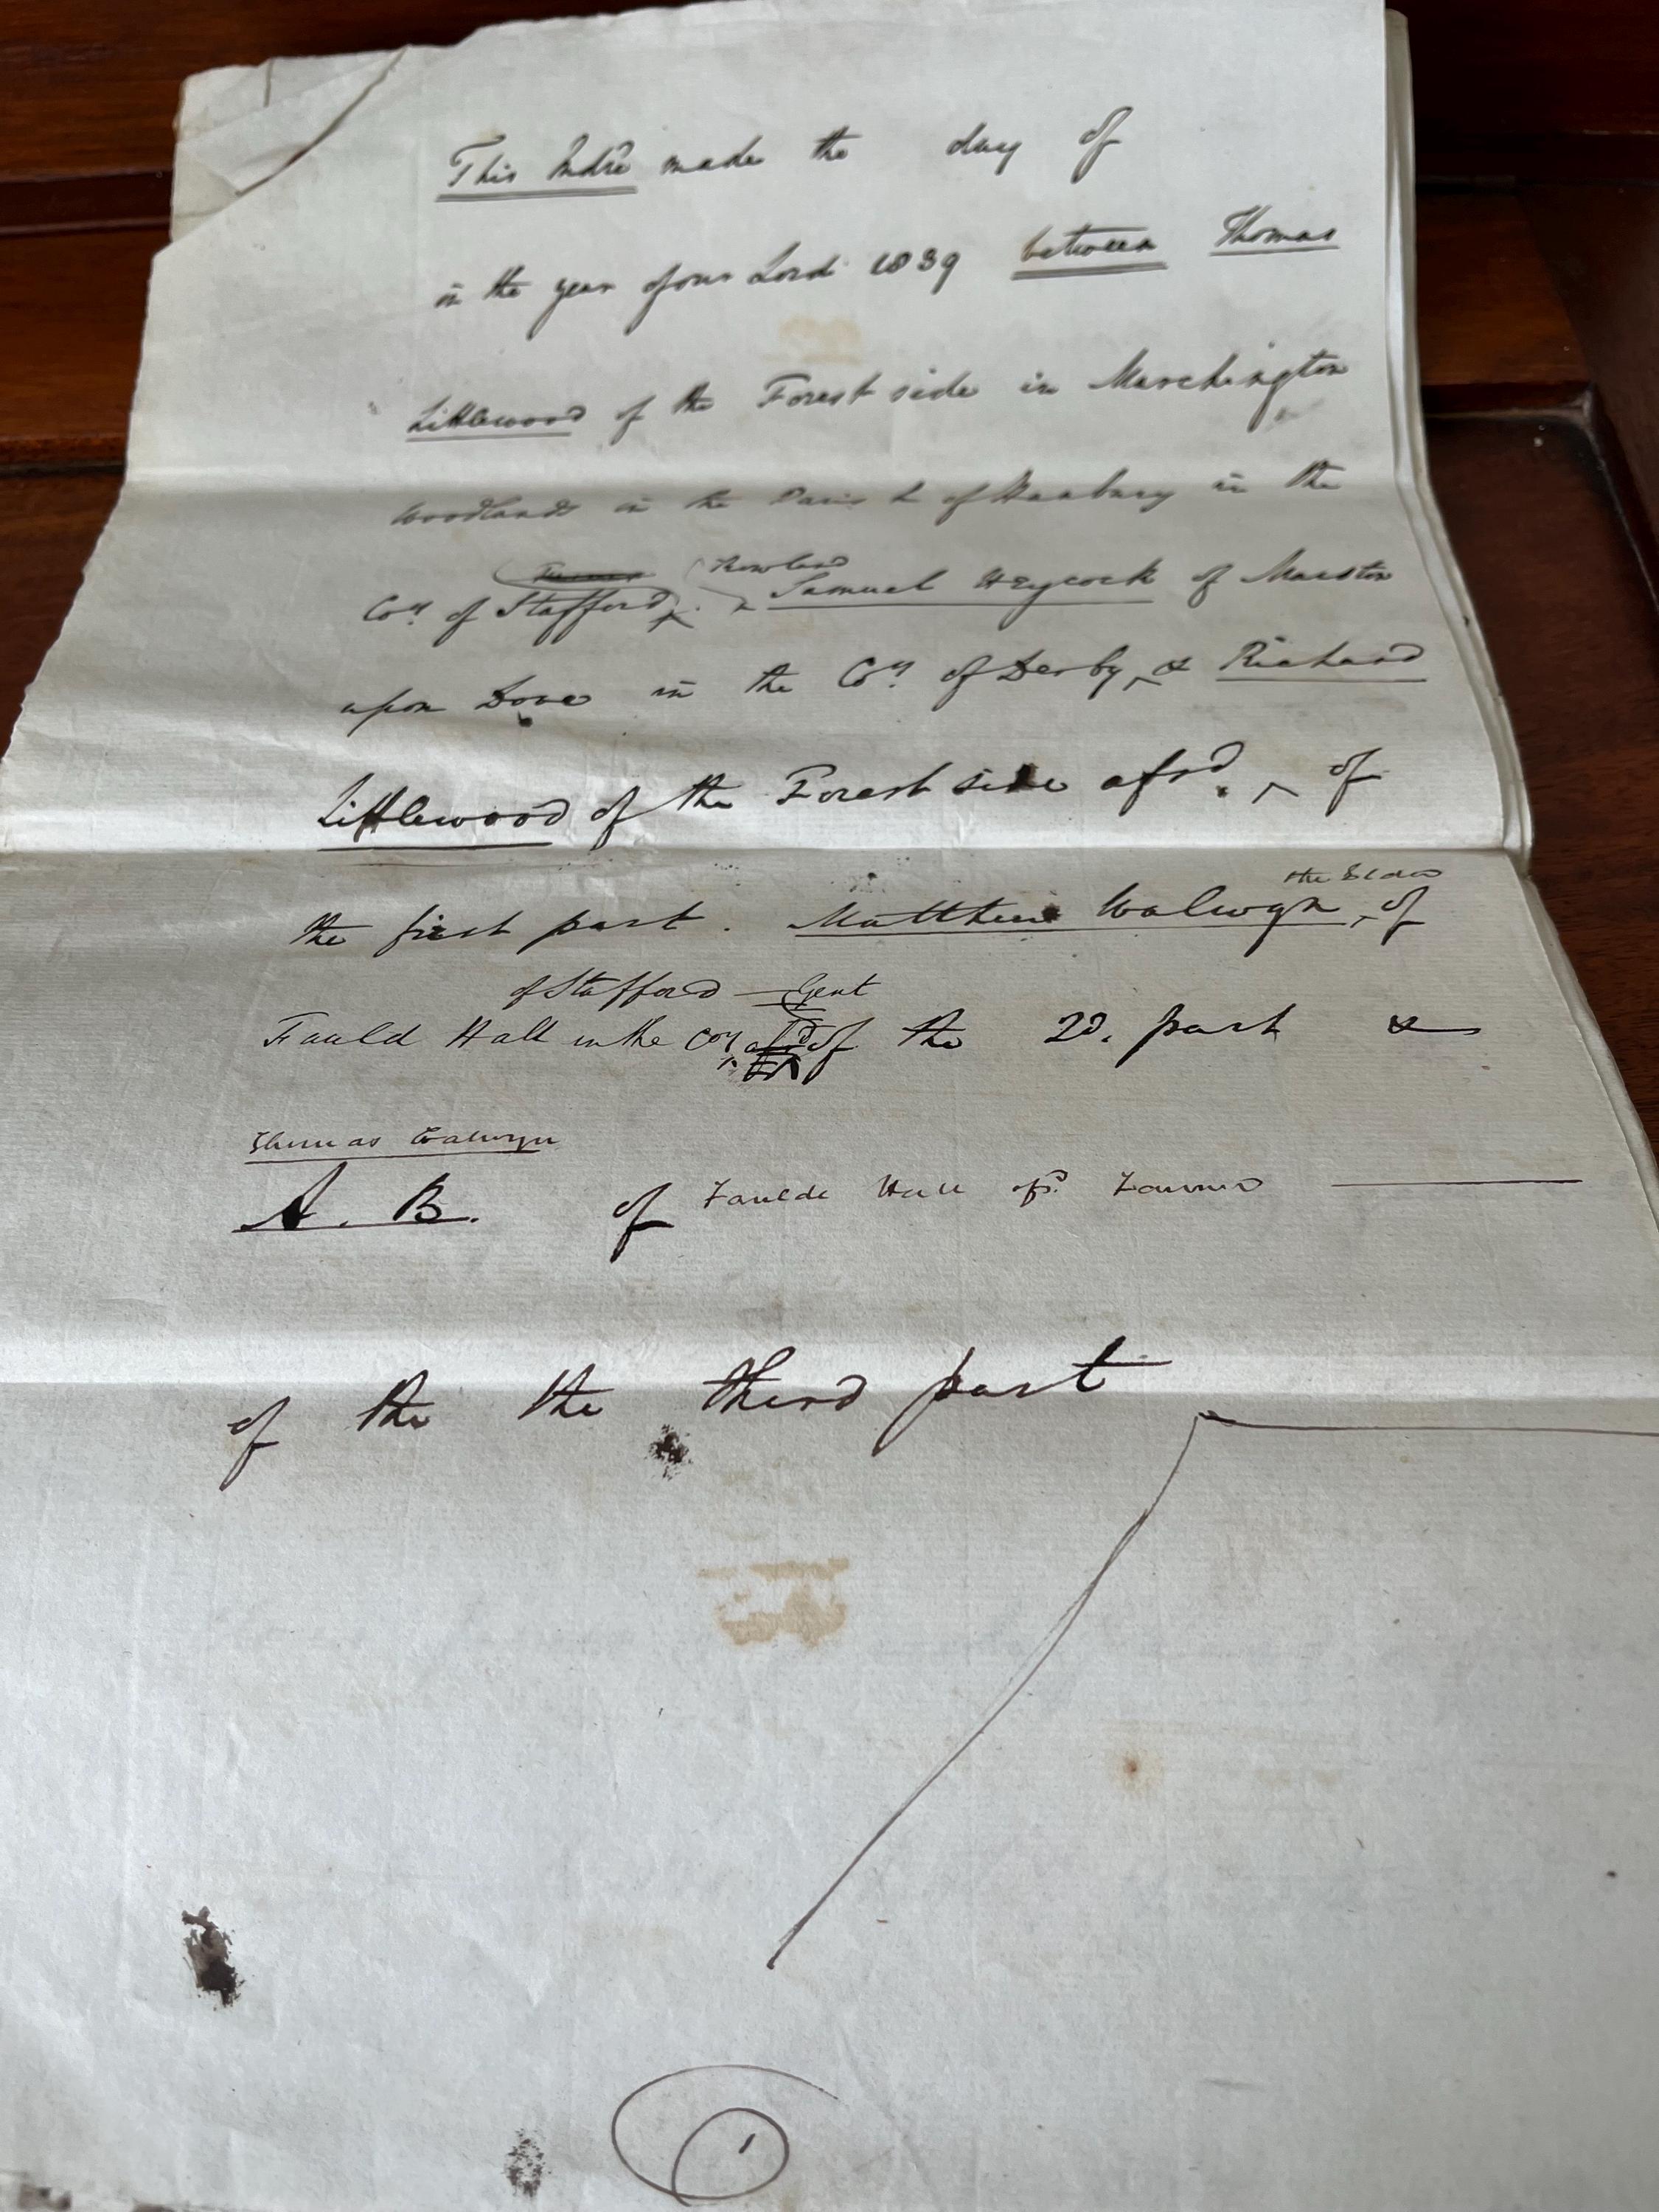 This Indre made the day of
in the year of our Lord 1839 between Thomas
Littlewood of the Forest side in Marchington
Woodlands in the Parish of Hanbury in the
Farmer
Rowland
Coy of Stafford & Samuel Heycock of Marston
upon Dove in the Coy of Derby & Richard
Littlewood of the Forest side afsd. of
the Elder
the first part. Matthew Walwyn of
of Stafford — Gent
Fauld Hall in the Coy of the 2d. part &
Thomas Walwyn
A. B. of Faulde Hall afsd Farmer
of the the third part
1